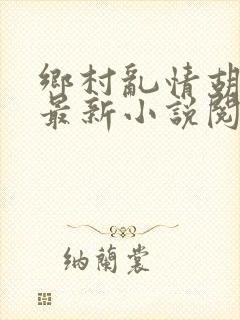 鄉村亂情胡
最新小說閱
纳蘭裳